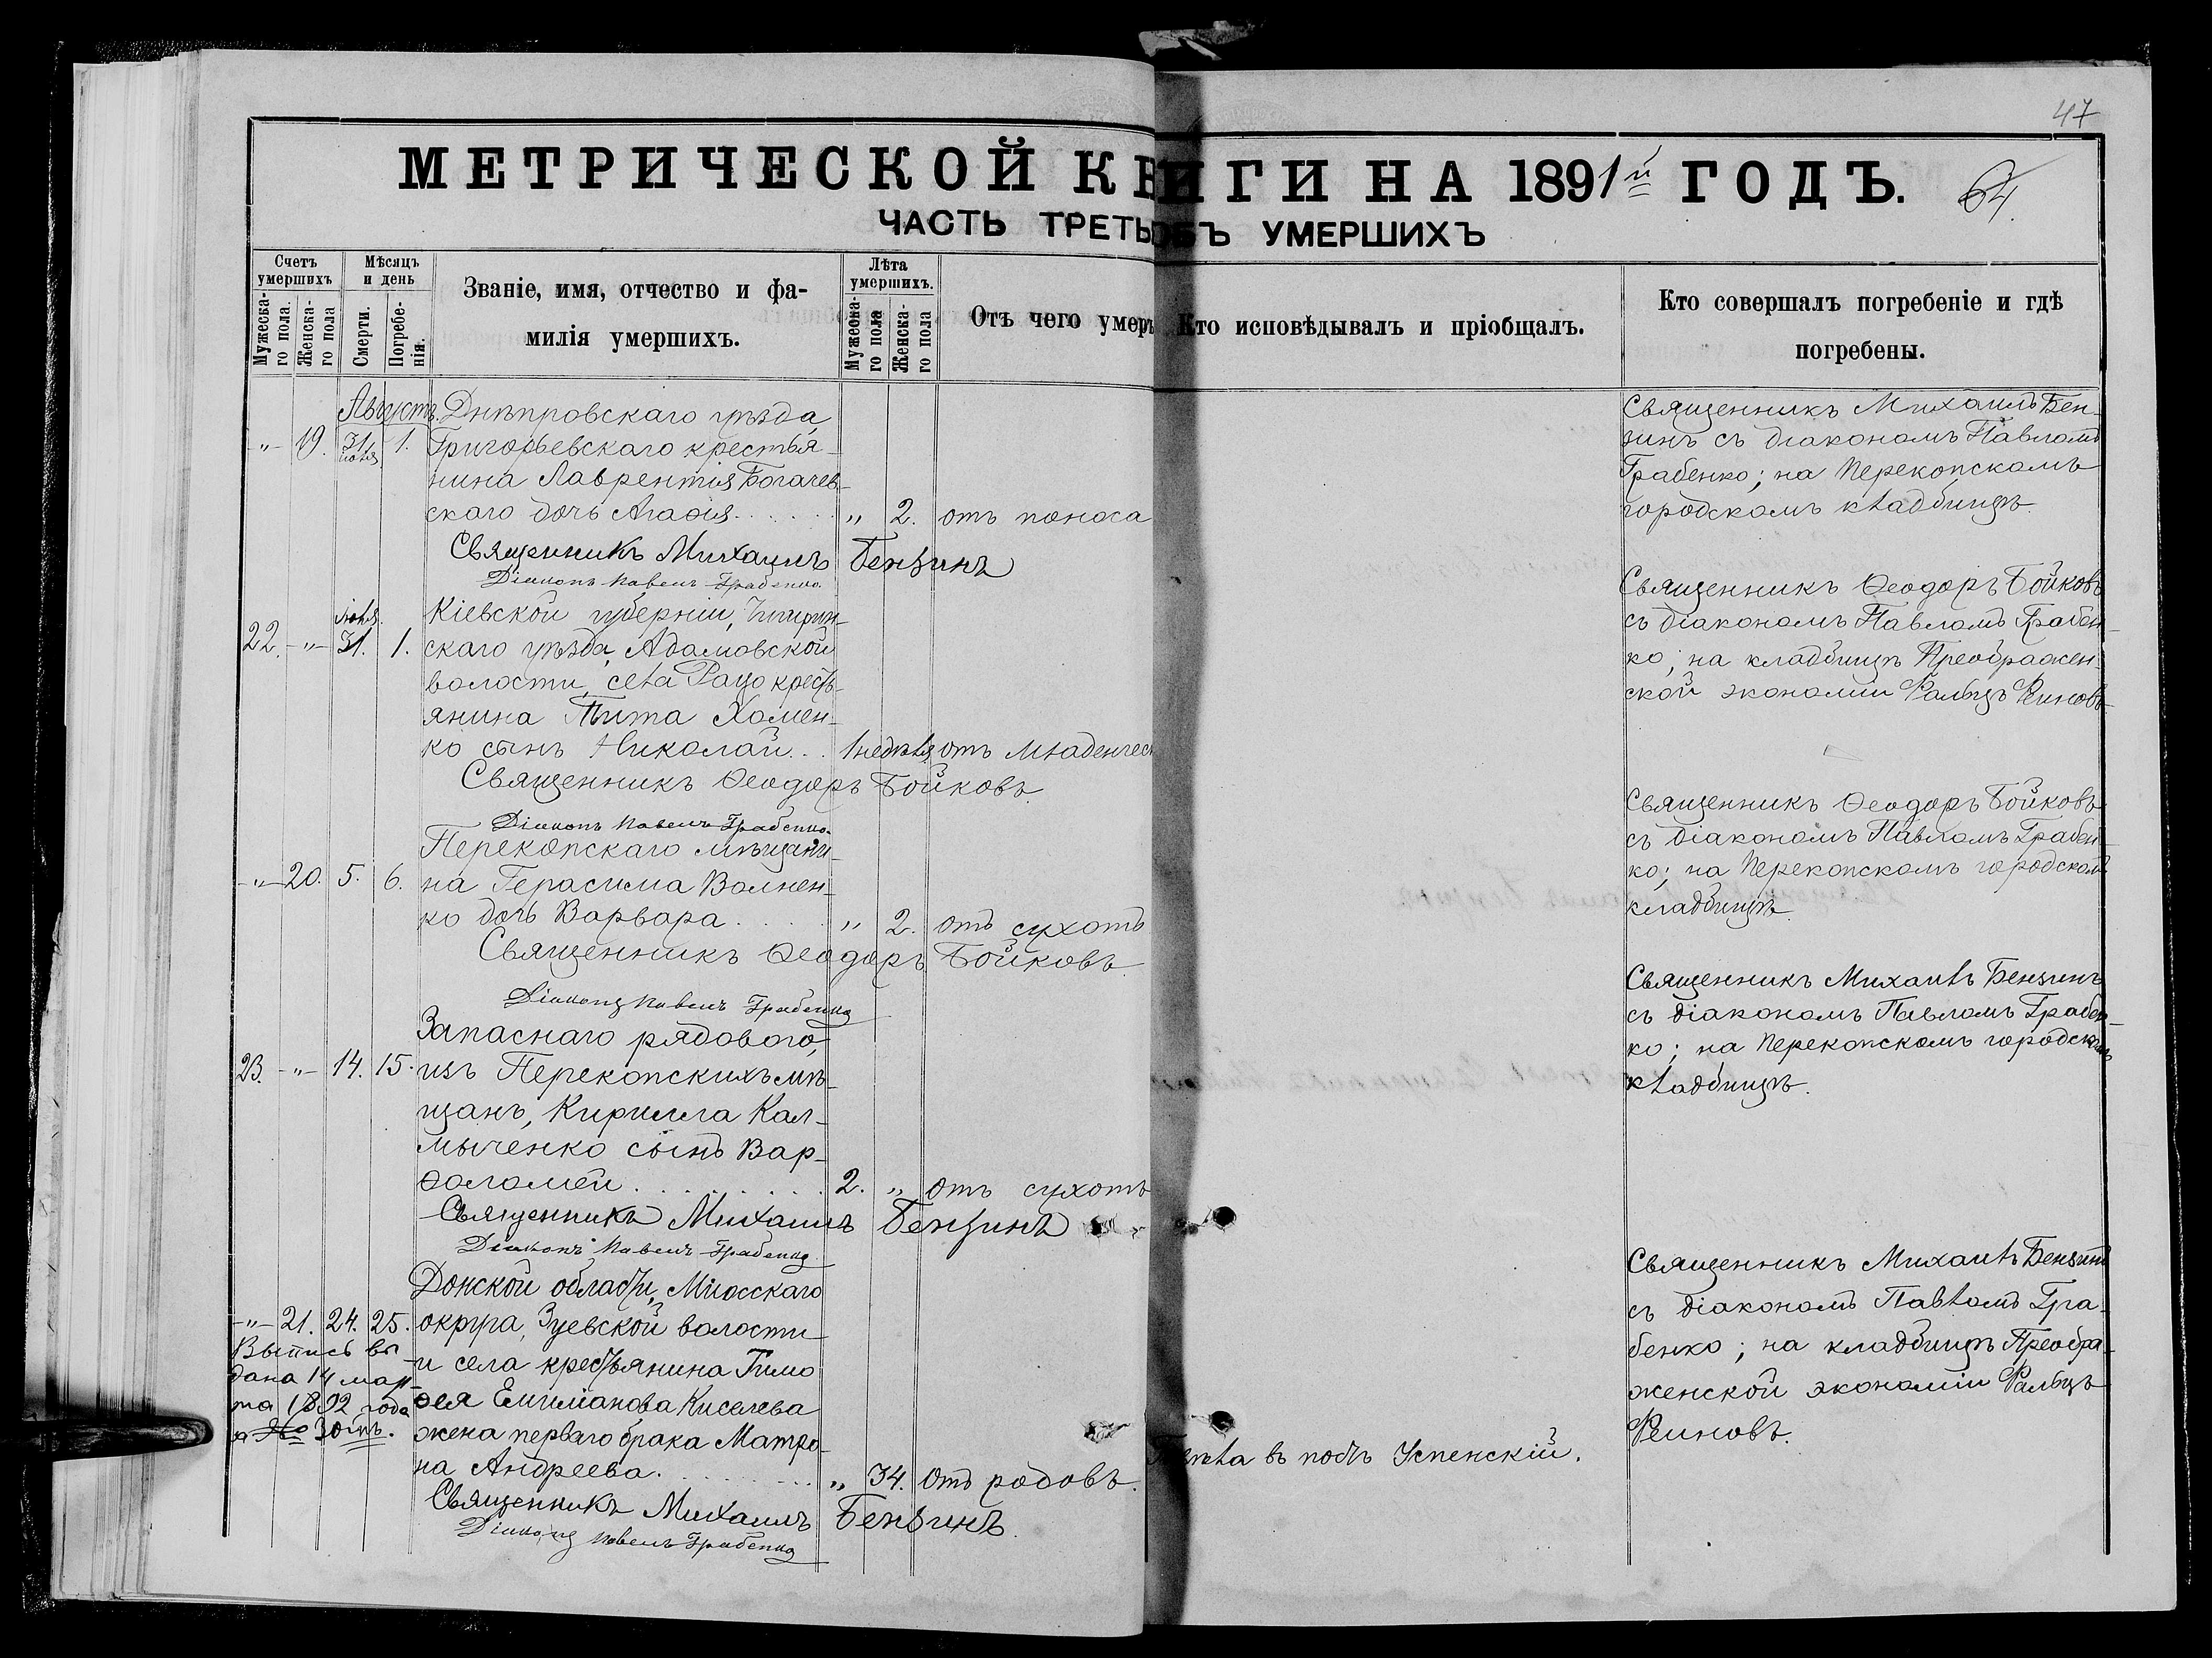 47
МЕТРИЧЕСКОЙ КНИГИ НА 1891й ГОДЪ.
64.
ЧАСТЬ ТРЕТЬ ОБЪ УМЕРШИХЪ
Счетъ умершихъ
Мужеска-го пола.
Женска-го пола
Мѣсяцъ и день
Смерти.
Погребе-нія.
Званіе, имя, отчество и фа-
милія умершихъ.
Лѣта умершихъ.
Мужеска-го пола
Женска-го пола
Отъ чего умеръ
Кто исповѣдывалъ и пріобщалъ.
Кто совершалъ погребеніе и гдѣ
погребены.
Августъ. Днѣпровскаго уѣзда,
-"- 19. 31 іюля 1. Григорьевскаго крестья-
нина Лаврентія Богачев-
скаго дочь Агаѳія. " 2. отъ поноса
Священникъ Михаилъ Бензинъ
Діаконъ Павелъ Грабенко
Священникъ Михаилъ Бен-
зинъ съ діакономъ Павломъ
Грабенко; на Перекопскомъ
городскомъ кладбищѣ.
Кіевской губерніи, Чигирин-
22. -"- Іюля 31. 1. скаго уѣзда, Адамовской
волости, села Рацо крестъ-
янина Тита Хомен-
ко сынъ Николай. 1 недѣля отъ младенческ
Священникъ Ѳеодоръ Бойковъ.
Діаконъ Павелъ Грабенко.
Священникъ Ѳеодоръ Бойковъ
съ діакономъ Павломъ Грабен-
ко; на кладбищѣ Преображен-
ской экономіи Фальцъ Феиновъ
Перекопскаго мѣщани-
-"- 20. 5. 6. на Герасима Волнен-
ко дочь Варвара. " 2. отъ сухотъ
Священникъ Ѳеодоръ Бойковъ.
Діаконъ Павелъ Грабенко
Священникъ Ѳеодоръ Бойковъ
съ діакономъ Павломъ Грабен-
ко; на Перекопскомъ городскомъ
кладбищѣ.
Запаснаго рядового,
23. -"- 14. 15. изъ Перекопскихъ мѣ-
щанъ, Кирилла Кал-
мыченко сынъ Вар-
ѳоломей. 2. " отъ сухотъ
Священникъ Михаилъ Бензинъ
Діаконъ Павелъ Грабенко
Священникъ Михаилъ Бензинъ
съ діакономъ Павломъ Грабен-
ко; на Перекопскомъ городскомъ
кладбищѣ.
Донской области, Міюсскаго
-"- 21. 24. 25. округа, Зуевской волости
и села крестьянина Тимо
ѳея Емиліанова Киселева
жена перваго брака Матро-
на Андреева. " 34. отъ родовъ.
Священникъ Михаилъ Бензинъ.
Діаконъ Павелъ Грабенко
Выпись вы-
дана 14 мар-
та 1892 года
за № 30мъ.
въ подъ Успенскій.
Священникъ Михаилъ Бензинъ
съ діакономъ Павломъ Гра-
бенко; на кладбищѣ Преобра-
женской экономіи Фальцъ
Феиновъ.